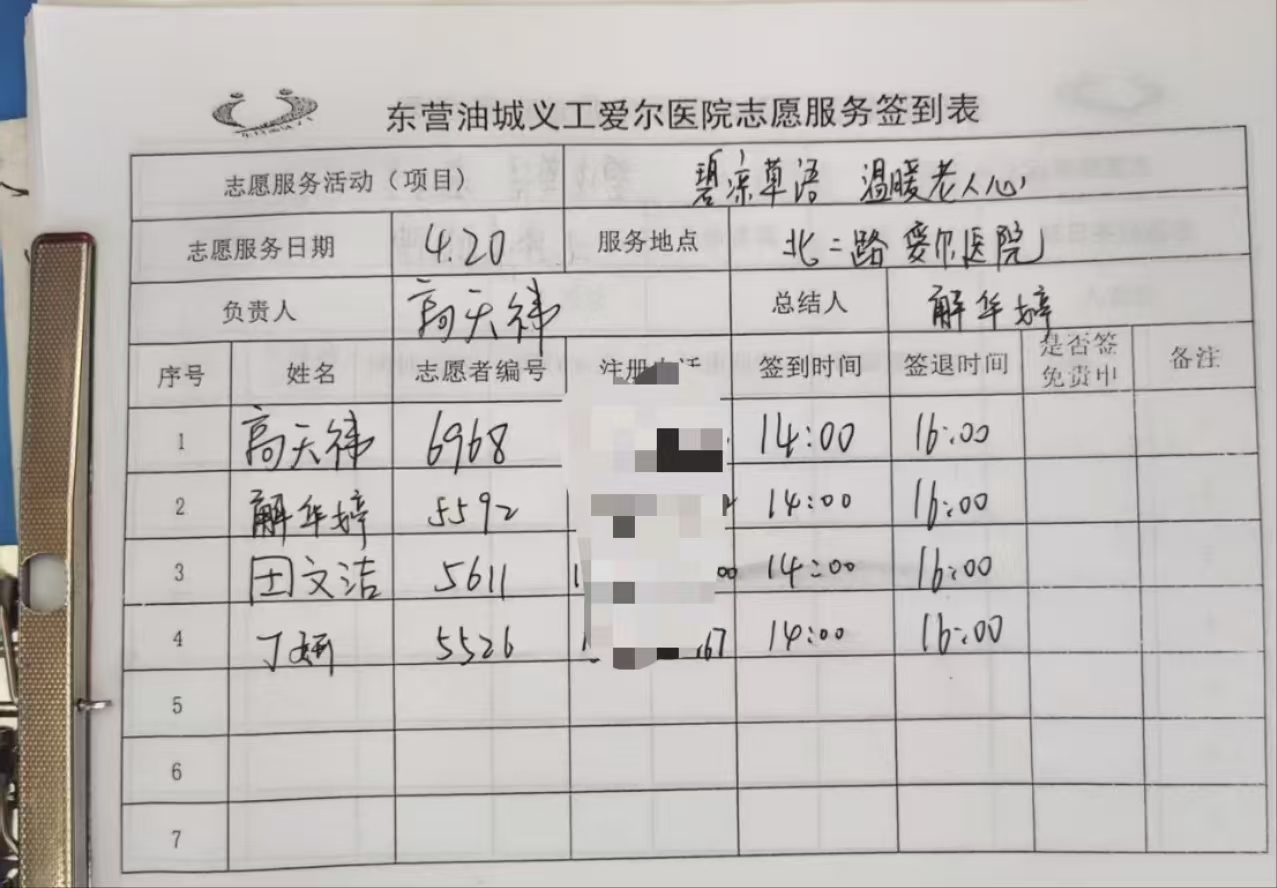 东营油城义工爱尔医院志愿服务签到表
志愿服务活动（项目） 碧凉草语 温暖老人心
志愿服务日期 4.20 服务地点 北二路爱尔医院
负责人 高天祎 总结人 解华婷
序号 姓名 志愿者编号 注册电话 签到时间 签退时间 是否签免责申 备注
1 高天祎 6968 14:00 16:00
2 解华婷 5592 14:00 16:00
3 田文洁 5611 1 00 14:00 16:00
4 丁妍 5526 1 67 14:00 16:00
5
6
7